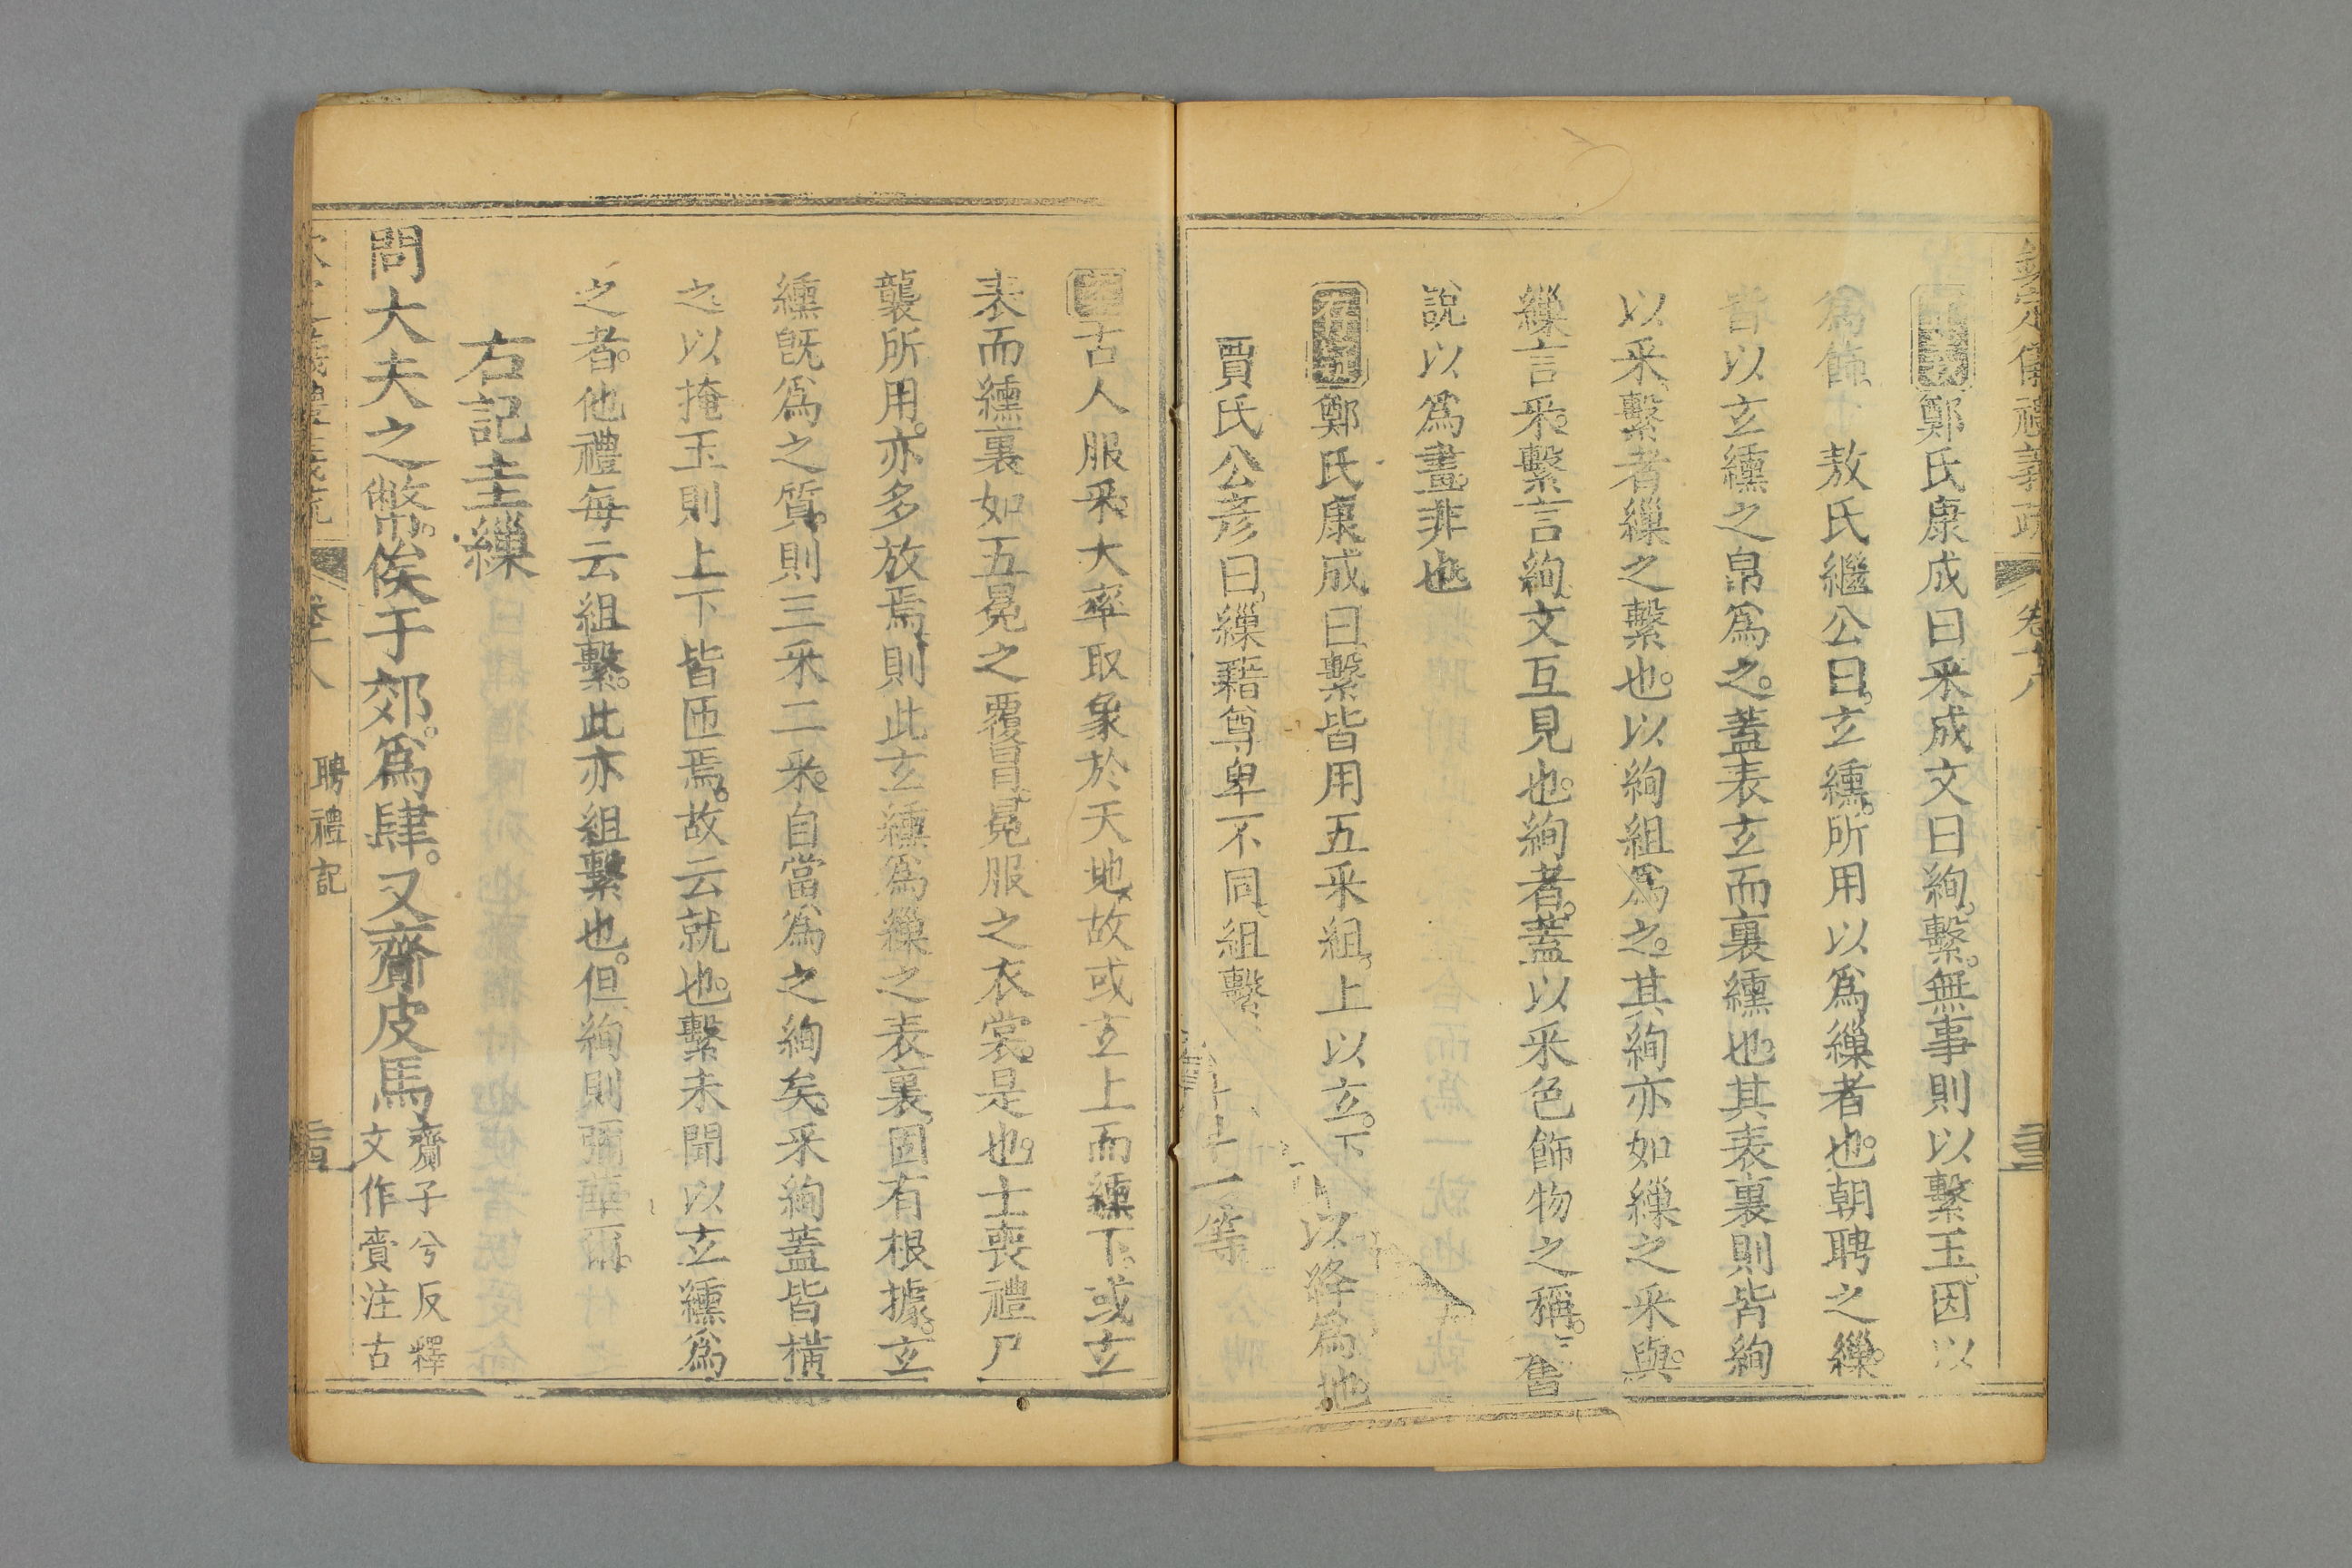 欽定儀禮義疏 卷十八
鄭氏康成曰采成文曰絢。繫。無事則以繫玉因以
爲飾 敖氏繼公曰玄纁。所用以爲繅者也。朝聘之繅。
皆以玄纁之帛爲之。蓋表玄而裏纁也。其表裏則皆絢
以采。繫者繅之繫也。以絢組爲之。其絢亦如繅之采與。
繅言采。繫言絢。文互見也。絢者。蓋以采色飾物之稱。舊
說以爲畫。非也
鄭氏康成曰繫皆用五采組。上以玄。下以絳爲地
賈氏公彥曰。繅藉尊卑不同。組繫 一等
古人服采。大率取象於天地。故或玄上而纁下。或玄
表而纁裏如五冕之覆冒。冕服之衣裳。是也。士喪禮尸
襲所用。亦多放焉。則此玄纁爲繅之表裏。固有根據。玄
纁旣爲之質。則三采二采。自當爲之絢矣。采絢蓋皆橫
之以掩玉則上下皆匝焉。故云就也。繫未聞以玄纁爲
之者。他禮每云組繫。此亦組繫也。但絢則彌華爾。
右記圭繅
問大夫之幣。俟于郊。爲肆。又齎皮馬 齎子兮反釋
文作賷注古
聘禮記